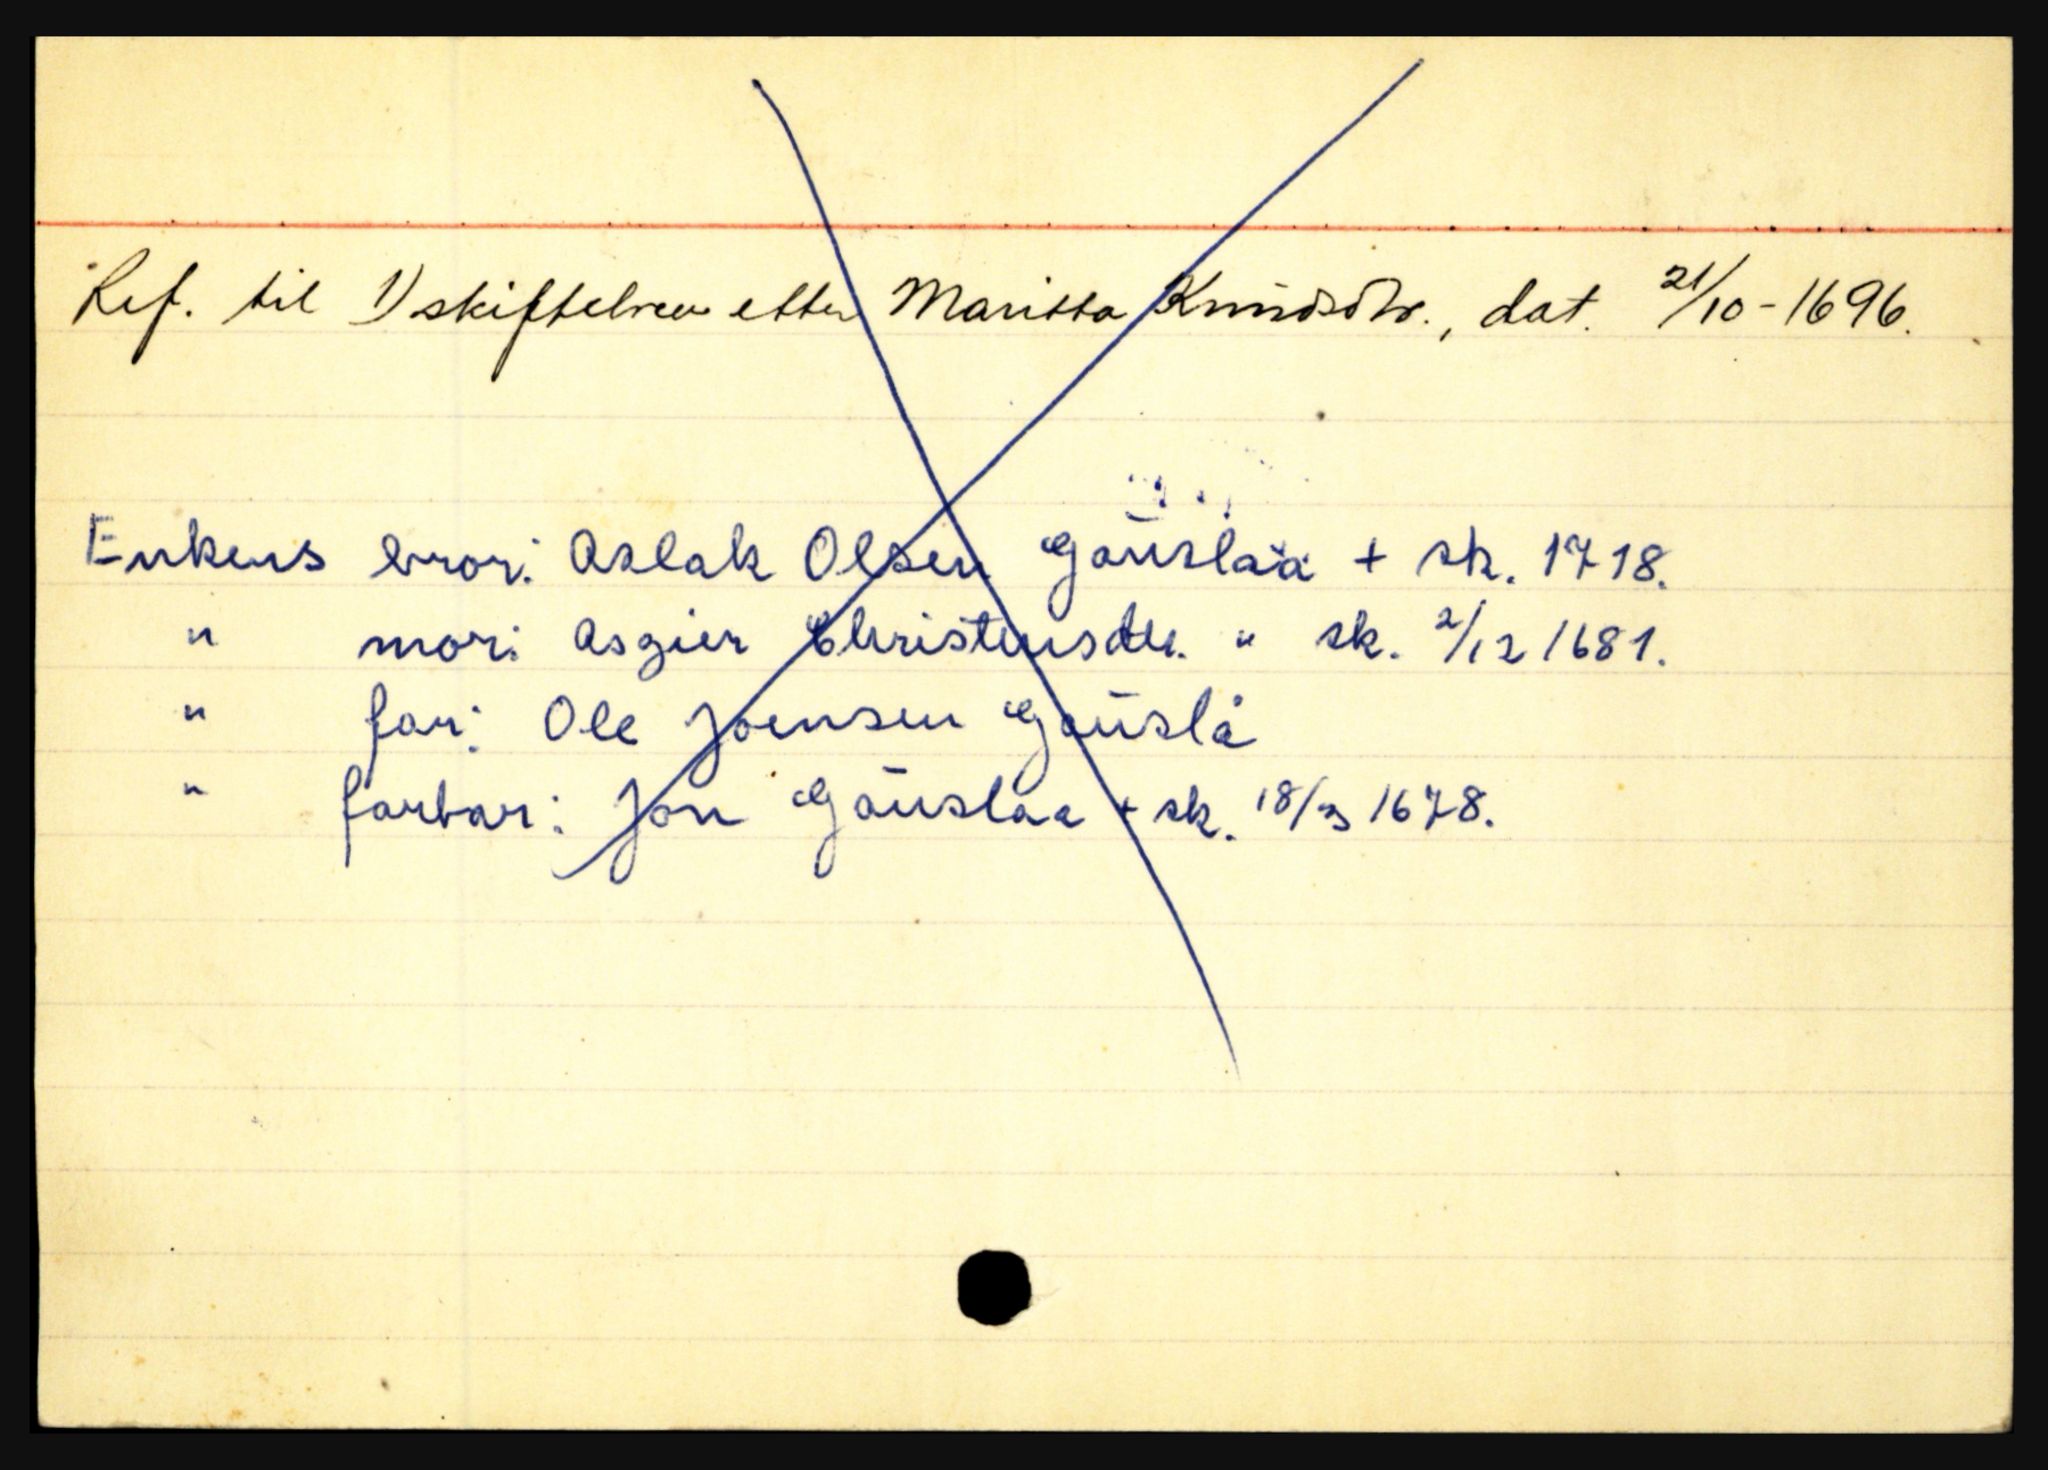 Ref. til 1) skiftebrev etter Maritta Knudsdtr., dat. 21/10-1696.
Enkens bror: Aslak Olsen Gaŭslaa + sk. 1718.
" mor: Asgier Christensdtr. " sk. 2/12 1681.
" far: Ole Joensen Gaŭslå
" farbar: Jon Gaŭslaa + sk. 18/3 1678.